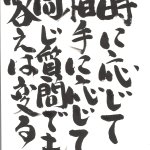 時に応じて
相手に応じて
同じ質問でも
答えは変る